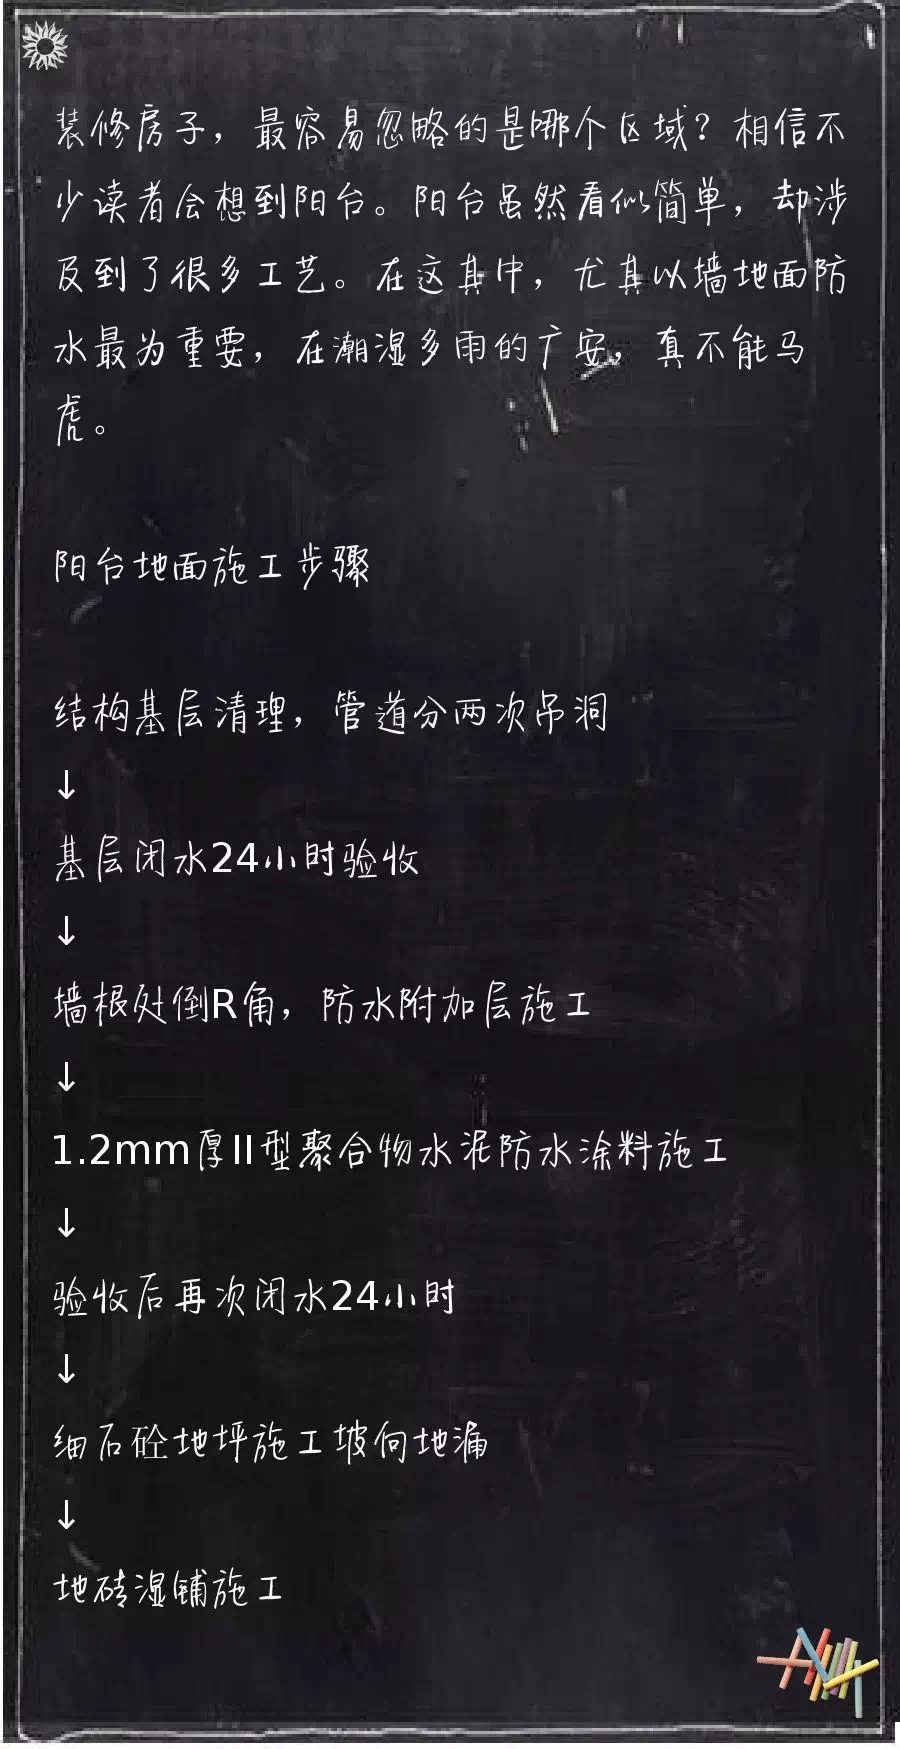 装修房子，最容易忽略的是哪个区域？相信不
少读者会想到阳台。阳台虽然看似简单，却涉
及到了很多工艺。在这其中，尤其以墙地面防
水最为重要，在潮湿多雨的广安，真不能马
虎。
阳台地面施工步骤
结构基层清理，管道分两次吊洞
↓
基层闭水24小时验收
↓
墙根处倒R角，防水附加层施工
↓
1.2mm厚II型聚合物水泥防水涂料施工
↓
验收后再次闭水24小时
↓
细石砼地坪施工坡向地漏
↓
地砖湿铺施工